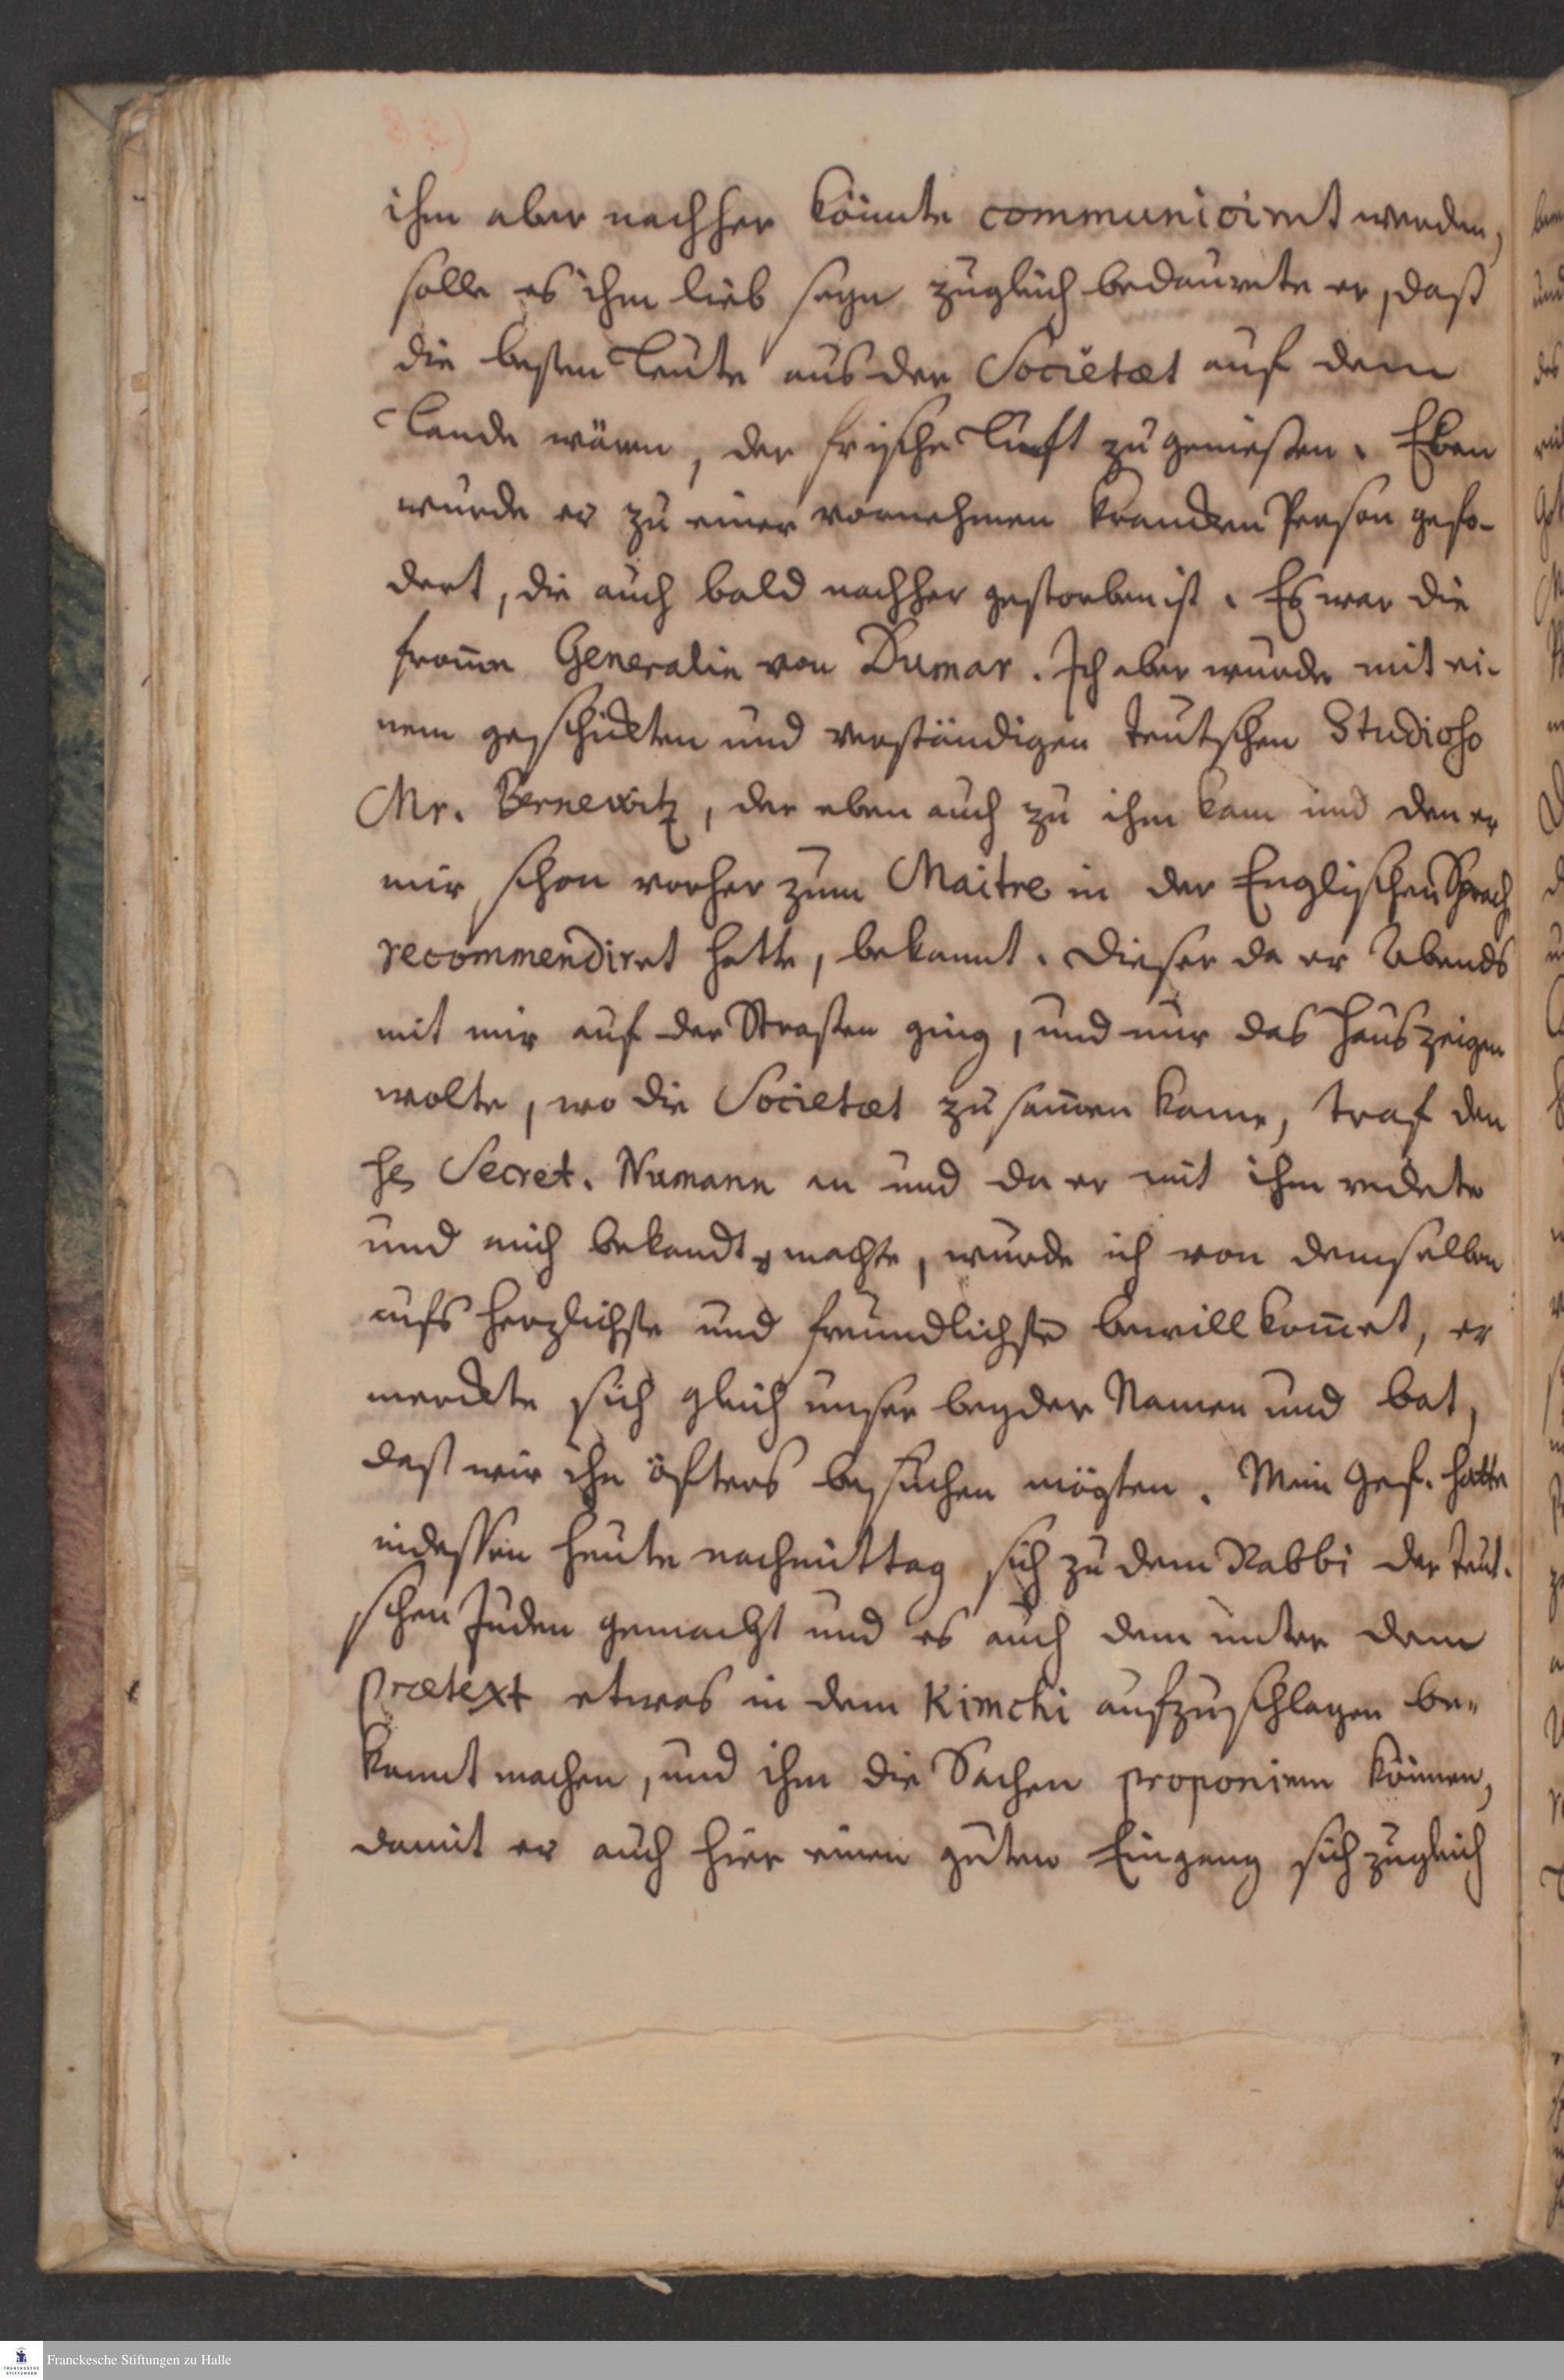 ihm aber nachher könnte communiciret werden,
solle es ihm lieb seyn zugleich bedaurete er, daß
die besten Leute aus der Societæt auf dem
Lande wären, der frische Lufft zu genießen. Eben
wurde er zu einer vornehmen krancken Person gefo-
dert, die auch bald nachher gestorben ist. Es war die
from̄e Generalin von Dumar. Ich aber wurde mit ei-
nem geschickten und verständigen teutschen Studioso
Mr. Bernewitz, der eben auch zu ihm kam und den er
mir schon vorher zum Maitre in der Englischen Sprach
recommendiret hatte, bekannt. Dieser da er Abends
mit mir auf der Straßen ging, und mir das Hauß zeigen
wolte, wo die Societæt zusam̄en kame, traf den
H. Secret. Numann an und da er mit ihm redete
und mich bekandt machte, wurde ich von demselben
aufs herzlichste und freundlichste bewillkom̄et, er
merckte sich gleich unser beyder Namen und bat,
daß wir ihn öfters besuchen mögten. Mein Gef. hatte
indessen heute nachmittag sich zu dem Rabbi der teut-
schen Juden gemacht und es auch dem unter dem
Prætext etwas in dem Kimchi aufzuschlagen be-
kannt machen, und ihm die Sachen proponiren können,
damit er auch hier einen guten Eingang sich zugleich
Franckesche Stiftungen zu Halle